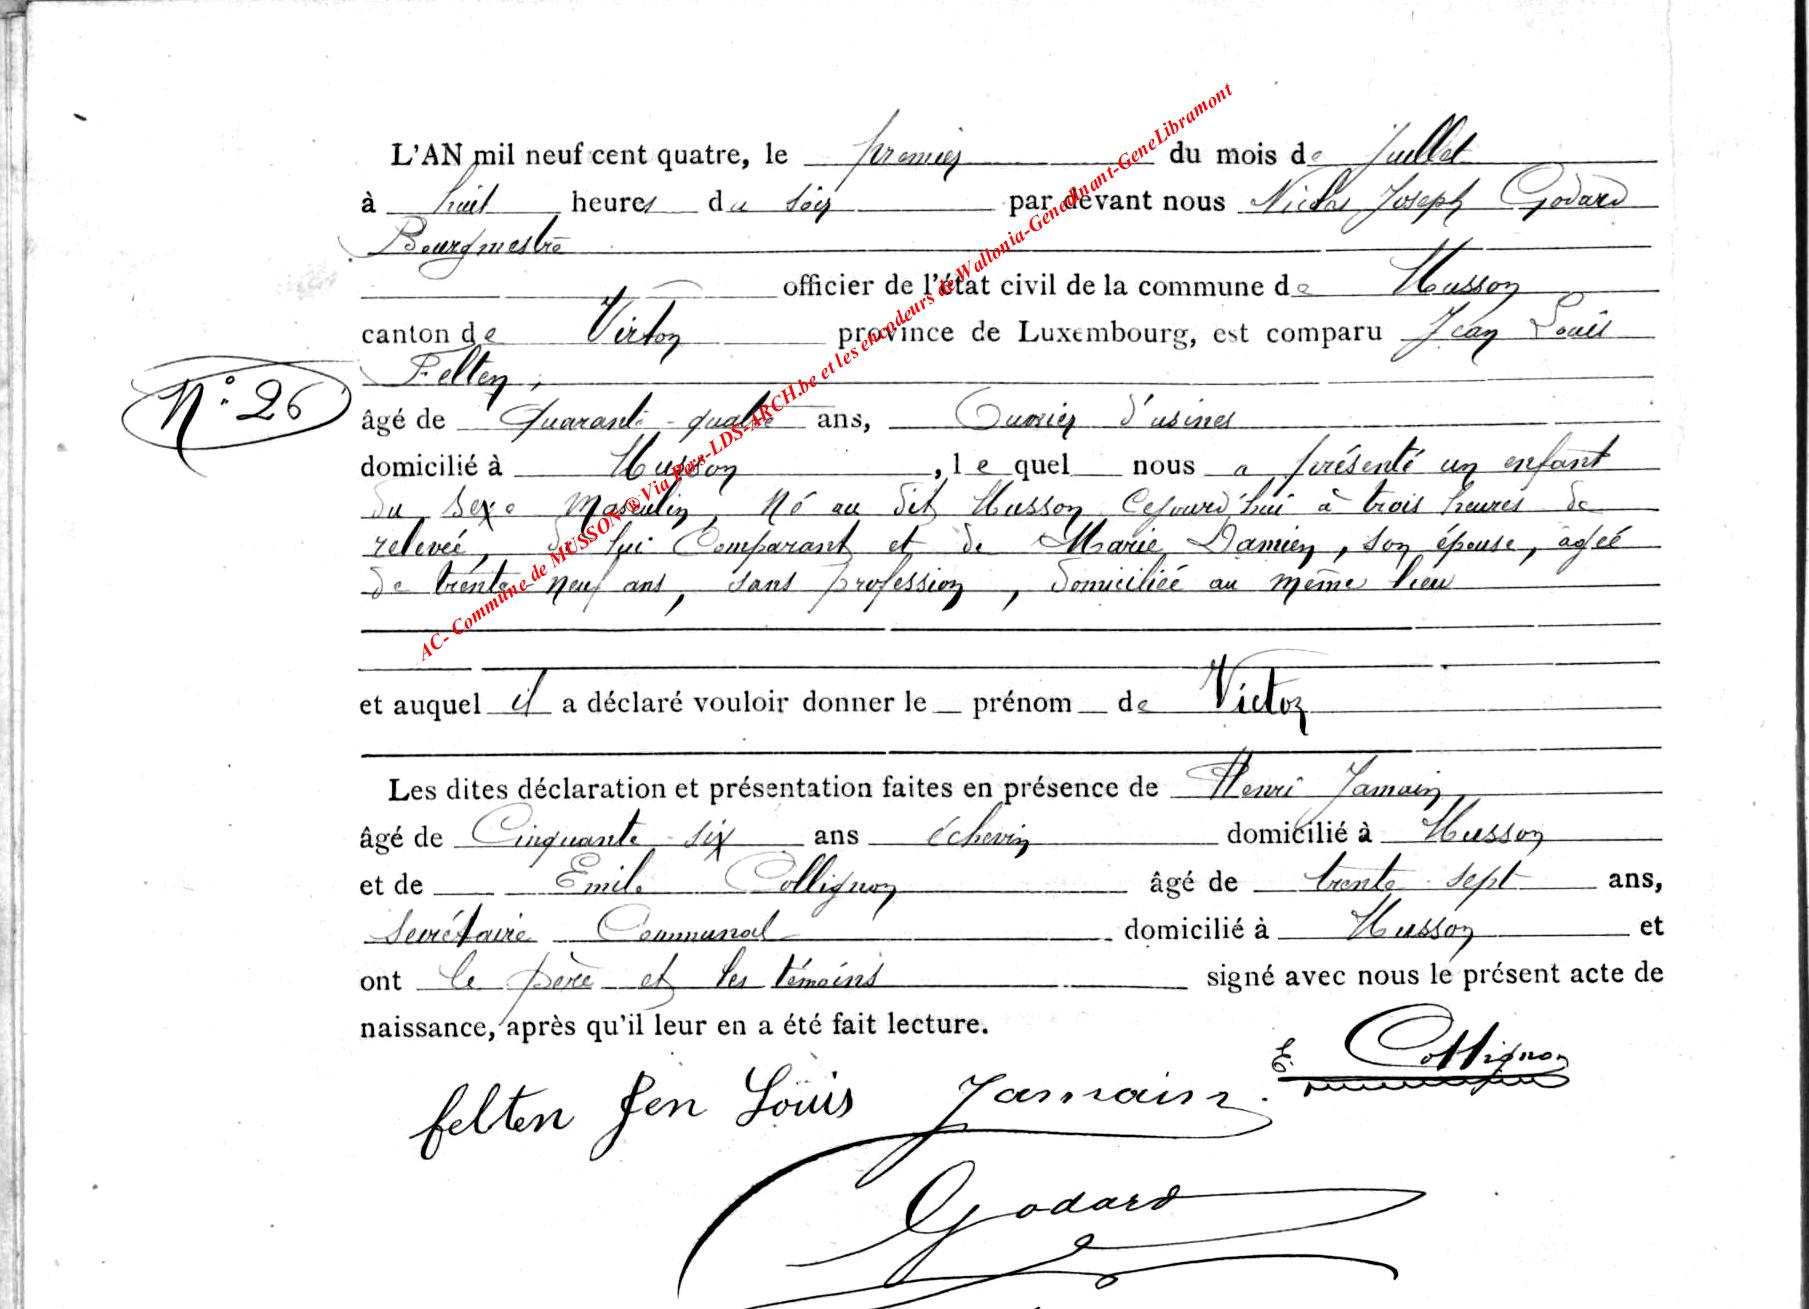 L'AN mil neuf cent quatre, le premier du mois de Juillet
à huit heures du soir par devant nous Nicolas Joseph Godard
Bourgmestre
officier de l'état civil de la commune de Musson
canton de Virton province de Luxembourg, est comparu Jean Louis
Felten,
N° 26
âgé de quarante-quatre ans, Ouvrier d'usines
domicilié à Musson, lequel nous a présenté un enfant
du sexe Masculin, Né au dit Musson Cejourd'hui à trois heures de
relevée, de lui Comparant et de Marie Damien, son épouse, âgée
de trente neuf ans, sans profession, domiciliée au même lieu
et auquel il a déclaré vouloir donner le prénom de Victor
Les dites déclaration et présentation faites en présence de Henri Jamain
âgé de Cinquante-six ans échevin domicilié à Musson
et de Emile Collignon âgé de trente-sept ans,
Secrétaire Communal domicilié à Musson et
ont le père et les témoins signé avec nous le présent acte de
naissance, après qu'il leur en a été fait lecture.
E. Collignon
felten Jen Louis Jamain.
Godard
AC- Commune de MUSSON ® Via Pers-LDS-ARCH.be et les encodeurs de Wallonia-Genedinant-GeneLibramont